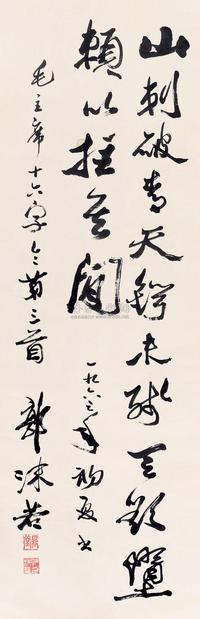 山刺破青天鍔未殘天欲墮
賴以拄其間
一九六三年初夏書
毛主席十六字令第三首 郭沫若